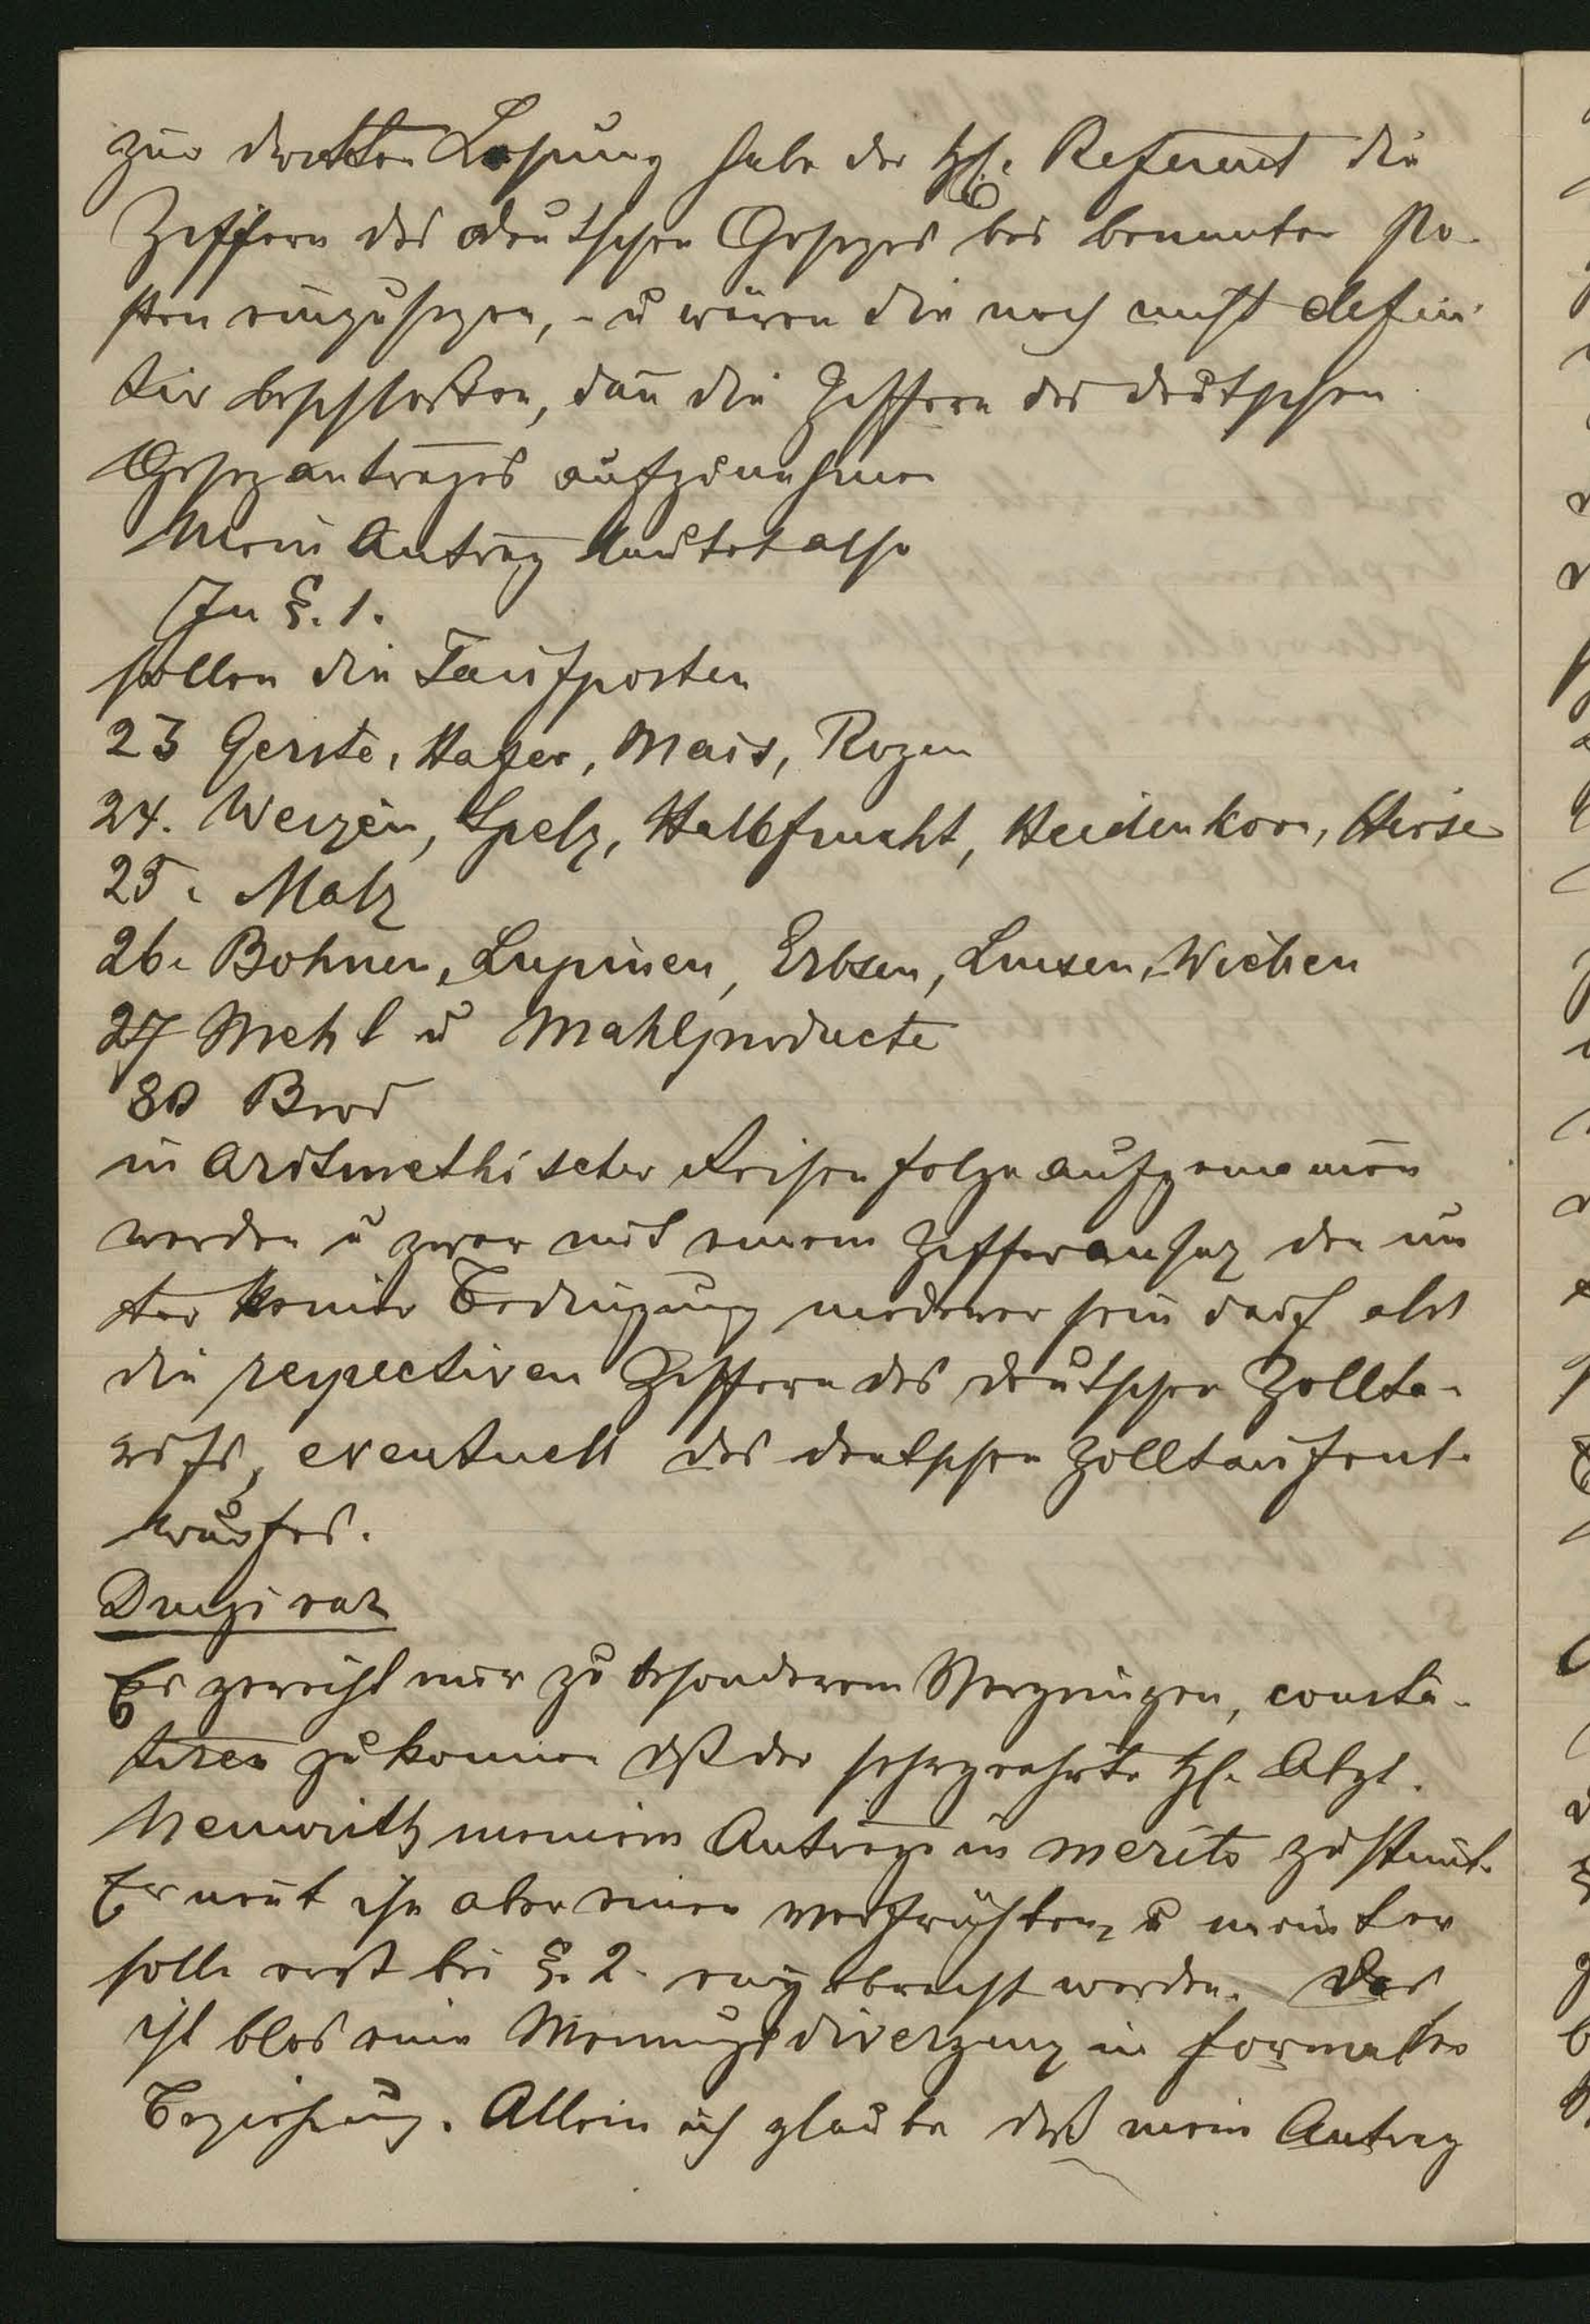 zur dritten Lesung habe der H. Referent die
Ziffern des deutschen Gesezes bei benannten Po-
sten einzusezen, - u wären die noch nicht defini
tiv beschloßen, dañ die Ziffern des deutschen
Gesezantrages aufzunehmen
Mein Antrag lautet also
In §. 1.
sollen die Tarifposten
23 Gerste, Hafer, Mais, Rogen
24. Weizen, Spelz, Halbfrucht, Heidenkorn, Hirse
25. Malz
26. Bohnen, Lupinen, Erbsen, Linsen, Wicken
27 Mehl u Mahlproducte
30 Brod
in aritmethischer Reihenfolge aufgenomen
werden u zwar mit einem Zifferansaz der un
ter keiner Bedingung niederer sein darf als
die respectiven Ziffern des deutschen Zollta-
rifs, eventuell des deutschen Zolltarifent-
wurfes.
Dumreicher
Es gereicht mir zu besonderem Vergnügen, consta-
tiren zu können dß der sehrgeehrte H. Abgt.
Neuwirth meinem Antrage in merito zustimt.
Er nent ihn aber einen verfrühten, u meint er
solle erst bei §. 2. eingebracht werden. Das
ist blos eine Meinungsdivergenz in formaler
Beziehung. Allein ich glaube daß mein Antrag